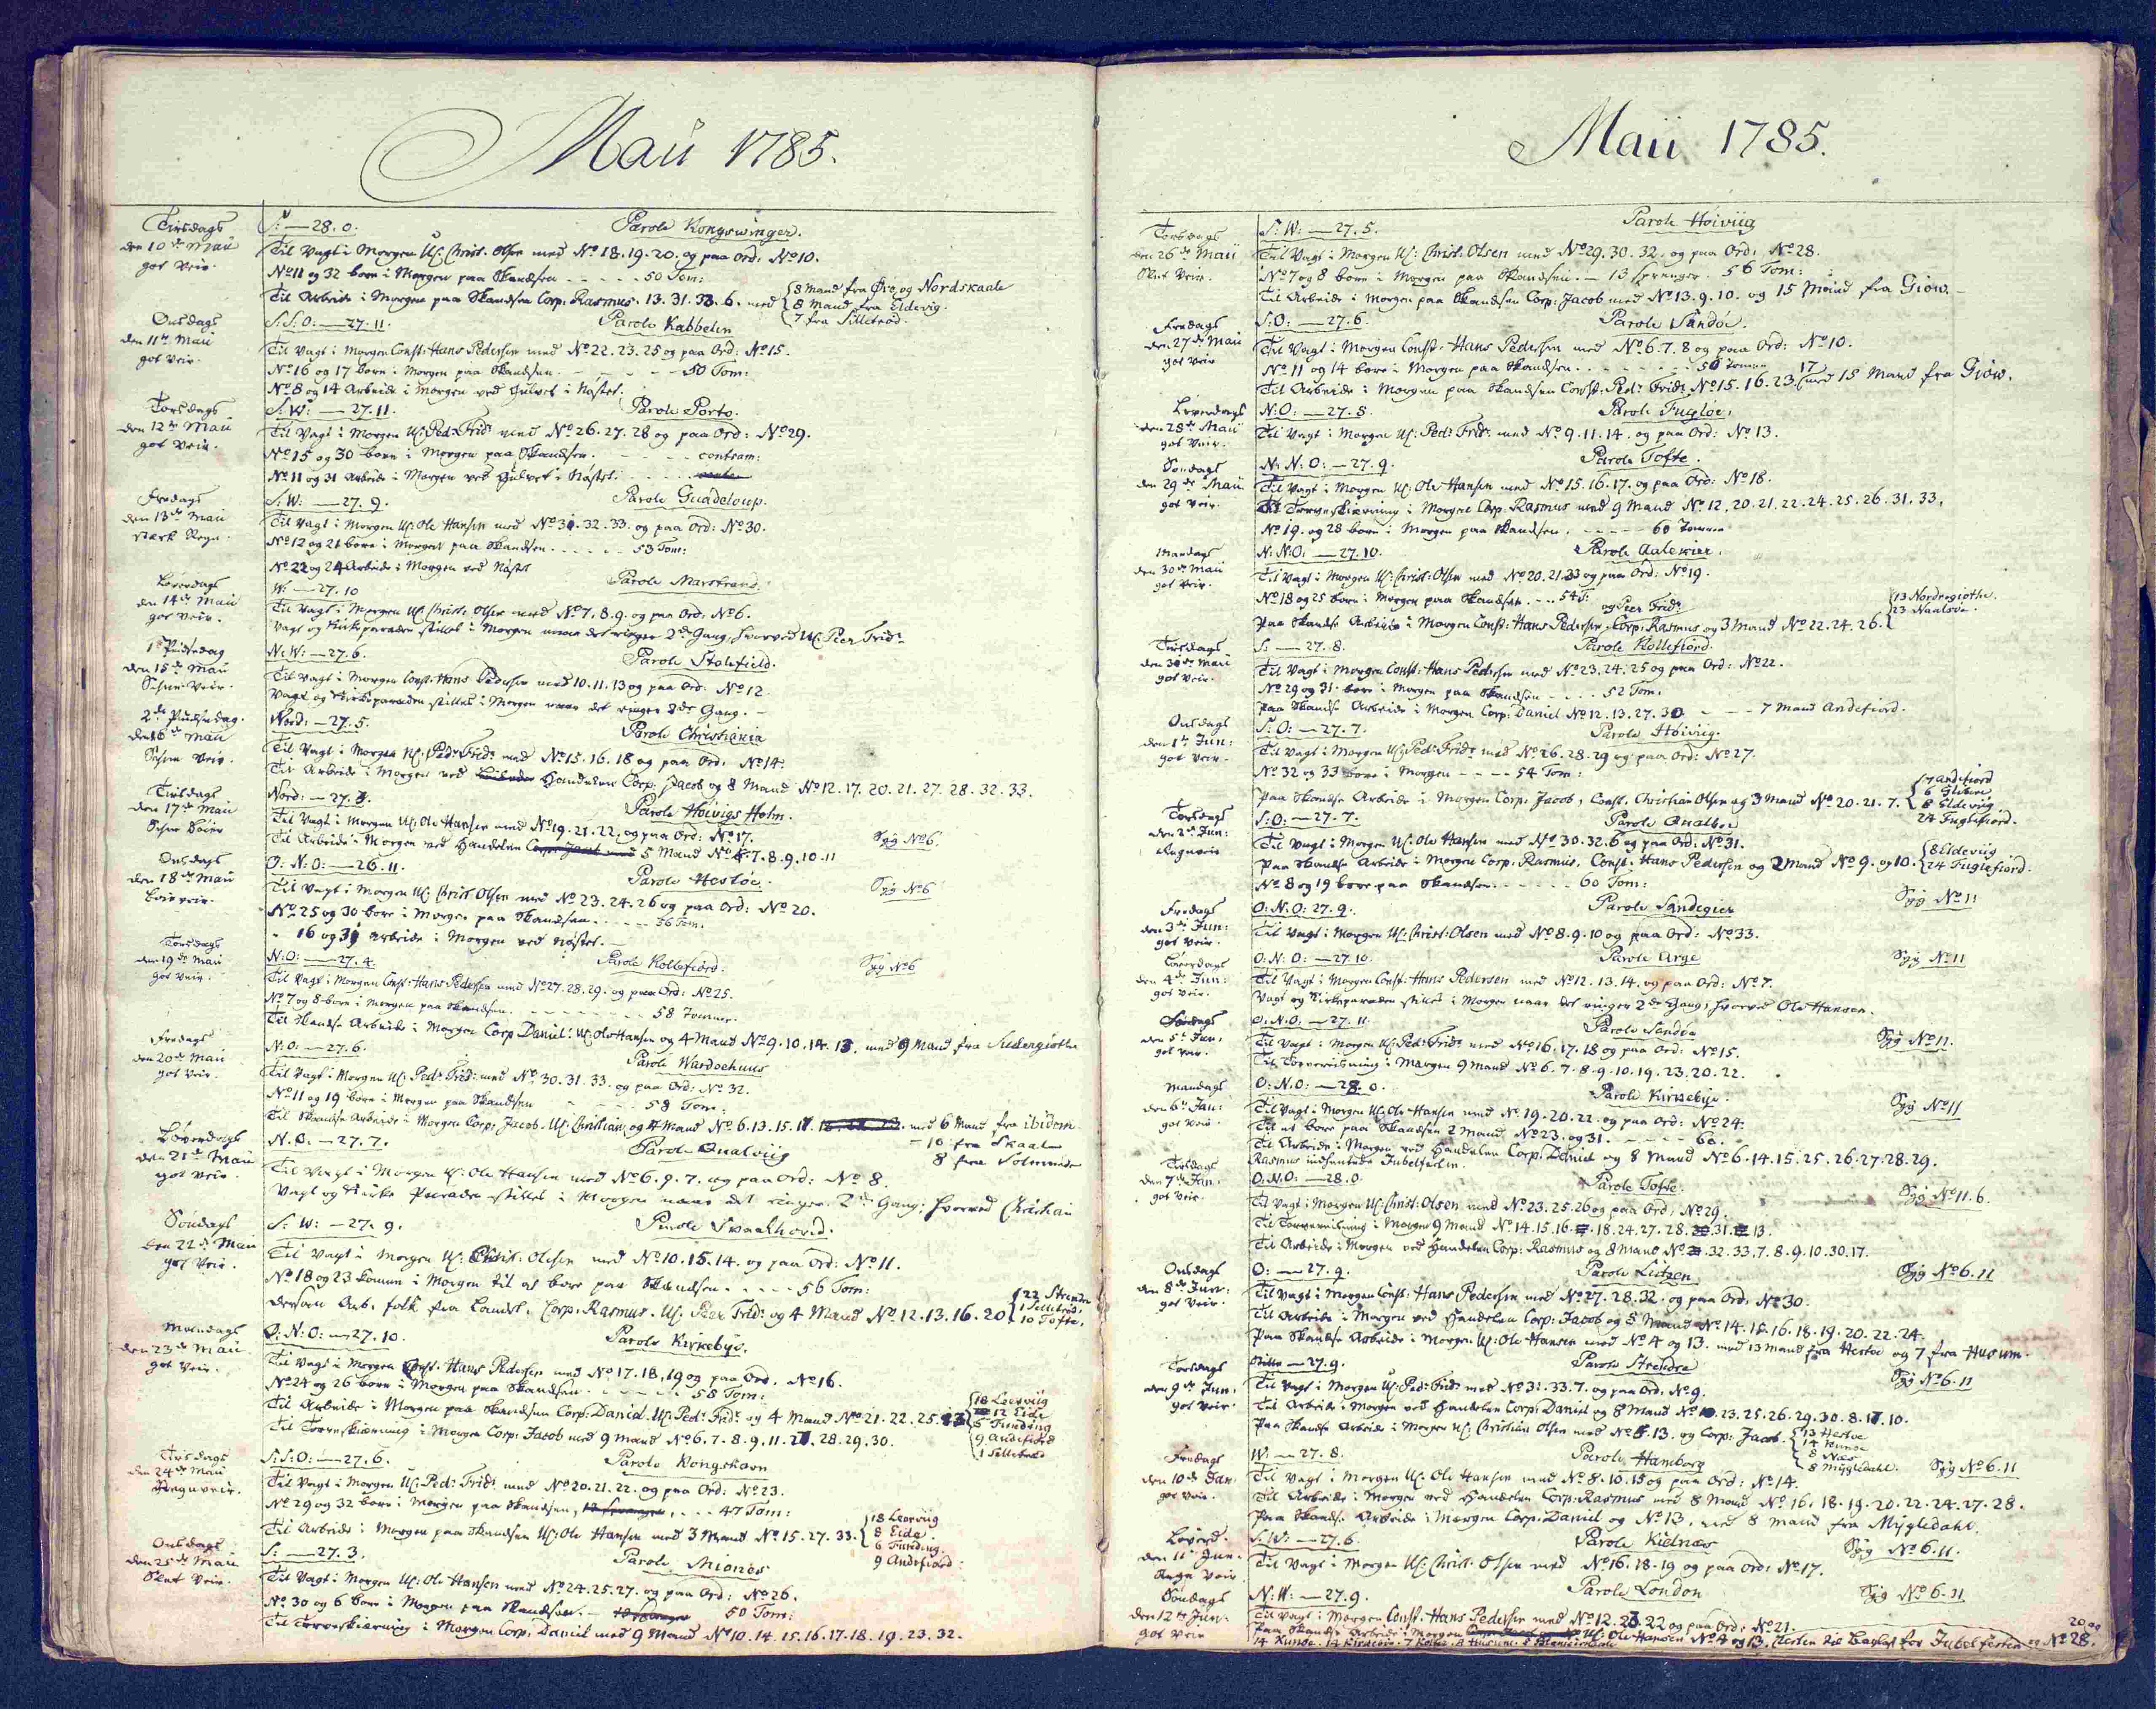 Maii 1785.
Tirsdags
den 10de Maii
got Veir.
S: — 28. 0.
Parole Kongswinger.
Til Vagt i Morgen U: Christ. Olsen med No 18. 19. 20. og paa Ord: No 10.
No 11 og 32 bore i Morgen paa Skandsen - - - - 50 Tom:
Til Arbeide i Morgen paa Skandsen Corp: Rasmus. 13. 31. 33. 6. med
8 Mand fra Øre og Nordskaale
8 Mand fra Eldevig.
7 fra Selletrød.
Onsdags
den 11te Maii
got Veir.
S: S: O: — 27. 11.
Parole Kabbelen
Til Vagt i Morgen Const: Hans Pedersen med No 22. 23. 25 og paa Ord: No 15.
No 16 og 17 bore i Morgen paa Skandsen. - - - - 50 Tom:
No 8 og 14 Arbeide i Morgen ved Gulvet i Nøstet.
Torsdags
den 12te Maii
got Veir.
S: W: — 27. 11.
Parole Porto.
Til Vagt i Morgen U: Ped: Frid: med No 26. 27. 28 og paa Ord: No 29.
No 15 og 30 bore i Morgen paa Skandsen. - - - - contram:
No 11 og 31 Arbeide i Morgen ved Gulvet i Nøstet.
Fredags
den 13de Maii
stærk Regn.
S: W: — 27. 9.
Parole Guadeloup.
Til Vagt i Morgen U: Ole Hansen med No 31. 32. 33. og paa Ord: No 30.
No 12 og 21 bore i Morgen paa Skandsen. - - - - 53 Tom:
No 22 og 24 Arbeide i Morgen ved Nøstet
Løverdags
den 14de Maii
got Veir.
W: — 27. 10
Parole Marstrand.
Til Vagt i Morgen U: Christ. Olsen med No 7. 8. 9. og paa Ord: No 6.
Vagt og Kirkeparaden stilles i Morgen naar det ringer 2de Gang, hvorved U: Peer Frid:
1e Pindsedag
den 15de Maii
Schiøn Veir.
N: W: — 27. 6.
Parole Stolefield.
Til Vagt i Morgen Const: Hans Pedersen med 10. 11. 13 og paa Ord: No 12.
Vagt og Kirkeparaden stilles i Morgen naar det ringer 2de Gang. -
2de Pindsedag.
den 16de Maii
Schiøn Veir.
Nord: — 27. 5.
Parole Christiania
Til Vagt i Morgen U: Ped: Frid: med No 15. 16. 18 og paa Ord: No 14.
Til Arbeide i Morgen ved Handelen Corp: Jacob og 8 Mand No 12. 17. 20. 21. 27. 28. 32. 33.
Tirsdags
den 17de Maii
Nord: — 27. 3.
Parole Hoivigs Holm.
Til Vagt i Morgen U: Ole Hansen med No 19. 21. 22, og paa Ord: No 17.
Syg No 6.
Til Arbeide i Morgen ved Handelen Corp: Jacob med 5 Mand No 7. 8. 9. 10. 11
Onsdags
den 18de Maii
O: N: O: — 26. 11.
Parole Hestøe.
Syg No 6
Til Vagt i Morgen U: Christ. Olsen med No 23. 24. 26 og paa Ord: No 20.
No 25 og 30 bore i Morgen paa Skandsen. - - - - 56 Tom:
" 16 og 31 Arbeide i Morgen ved Nøstet. -
Torsdags
den 19de Maii
got Veir.
N: O: — 27. 4.
Parole Kollefiord.
Syg No 6
Til Vagt i Morgen Const: Hans Pedersen med No 27. 28. 29. og paa Ord: No 25.
No 7 og 8 bore i Morgen paa Skandsen. - - - - 58 Tonner.
Til Skandse Arbeide i Morgen Corp Daniel. U: Ole Hansen og 4 Mand No 9. 10. 14. 13. med 9 Mand fra Sudergiøthe
Fredags
den 20de Maii
got Veir.
N: O: — 27. 6.
Parole Wardoehuus
Til Vagt i Morgen U: Ped: Frid: med No 30. 31. 33. og paa Ord: No 32.
No 11 og 19 bore i Morgen paa Skandsen - - - - 58 Tom:
Til Skandse Arbeide i Morgen Corp: Jacob. U: Christian, og 4 Mand No 6. 13. 15. 17. med 6 Mand fra ibidem
- 10 fra Skaale
8 fra Solmunde
Løverdags
den 21de Maii
got Veir.
N. O. — 27. 7.
Parole Qualviig
Til Vagt i Morgen U: Ole Hansen med No 6. 9. 7. og paa Ord: No 8.
Vagt og Kirke Paraden stilles i Morgen naar det ringer 2de Gang, hvorved Christian
Søndags
den 22de Maii
got Veir.
S: W: — 27. 9.
Parole Swaakhoved.
Til Vagt i Morgen U: Christ: Olsen med No 10. 15. 14. og paa Ord: No 11.
No 18 og 23 komme i Morgen til at bore paa Skandsen - - - - 56 Tom:
dersom Arb. folk fra Landet, Corp: Rasmus. U: Peer Frid: og 4 Mand No 12. 13. 16. 20
22 Strender
1 Selletrød.
10 Tofte.
Mandags
den 23de Maii
got Veir.
O: N: O: — 27. 10.
Parole Kirkebye.
Til Vagt i Morgen Const. Hans Pedersen med No 17. 18. 19 og paa Ord. No 16.
No 24 og 26 bore i Morgen paa Skandsen. - - - - 58 Tom:
Til Arbeide i Morgen paa Skandsen Corp: Daniel. U: Ped: Frid: og 4 Mand No 21. 22. 25. 33
18 Leerviig
12 Eide
6 Funding
9 Andefiord
1 Selletrød
Til Tørveskiæring i Morgen Corp: Jacob med 9 Mand No 6. 7. 8. 9. 11. 27. 28. 29. 30.
Tirsdags
den 24de Maii
Regnveir.
S: S: O: — 27. 6.
Parole Kongshavn
Til Vagt i Morgen U: Ped: Frid: med No 20. 21. 22. og paa Ord: No 23.
No 29 og 32 bore i Morgen paa Skandsen, - - - 47 Tom:
Til Arbeide i Morgen paa Skandsen U: Ole Hansen med 3 Mand No 15. 27. 33.
18 Leerviig
8 Eide.
6 Funding.
9 Andefiord
Onsdags
den 25de Maii
Slet Veir.
S: — 27. 3.
Parole Mionæs
Til Vagt i Morgen U: Ole Hansen med No 24. 25. 27. og paa Ord: No 26.
No 30 og 6 bore i Morgen paa Skandsen. - 50 Tom:
Til Tørveskiæring i Morgen Corp: Daniel med 9 Mand No 10. 14. 15. 16. 17. 18. 19. 23. 32.
Maii 1785.
Torsdags
den 26de Maii
Slet Veir
S: W: — 27. 5.
Parole Hoiviig
Til Vagt i Morgen U: Christ. Olsen med No 29. 30. 32. og paa Ord: No 28.
No 7 og 8 bore i Morgen paa Skandsen. - 13 sprenger. 56 Tom:
Til Arbeide i Morgen paa Skandsen Corp: Jacob med No 13. 9. 10. og 15 Mand fra Giow. -
Fredags
den 27de Maii
got Veir
S: O: — 27. 6.
Parole Sandøe.
Til Vagt i Morgen Const. Hans Pedersen med No 6. 7. 8 og paa Ord: No 10.
No 11 og 14 bore i Morgen paa Skandsen. - - - - 50 Tommer
17
Til Arbeide i Morgen paa Skandsen Const: Ped: Frid: No 15. 16. 23. med 15 Mand fra Giow.
Løverdags
den 28de Maii
got Veir.
N: O: — 27. 8.
Parole Fugløe.
Til Vagt i Morgen U: Ped: Frid: med No 9. 11. 14. og paa Ord: No 13.
Søndags
den 29de Maii
got Veir.
N: N: O: — 27. 9.
Parole Tofte.
Til Vagt i Morgen U: Ole Hansen med No 15. 16. 17. og paa Ord: No 18.
Til Tørveskiæring i Morgen Corp: Rasmus med 9 Mand No 12. 20. 21. 22. 24. 25. 26. 31. 33.
No 19. og 28 bore i Morgen paa Skandsen. - - - - 60 Tommer
Mandags
den 30de Maii
got Veir.
N: N: O: — 27. 10.
Parole Aalekier.
Til Vagt i Morgen U: Christ: Olsen med No 20. 21. 23 og paa Ord: No 19.
No 18 og 25 bore i Morgen paa Skandsen. - - 54 T:
og Peer Frid:
Paa Skandse Arbeide i Morgen Const: Hans Pedersen, Corp: Rasmus og 3 Mand No 22. 24. 26.
13 Nordregiøthe.
23 Naalsøe.
Tirsdags
den 31de Maii
got Veir.
S: — 27. 8.
Parole Kollefiord.
Til Vagt i Morgen Const: Hans Pedersen med No 23. 24. 25 og paa Ord: No 22.
No 29 og 31 bore i Morgen paa Skandsen - - - 52 Tom:
Paa Skandse Arbeide i Morgen Corp: Daniel No 12. 13. 27. 30 - - - 7 Mand Andefiord.
Onsdags
den 1te Jun:
got Veir.
S: O: — 27. 7.
Parole Hoiviig.
Til Vagt i Morgen U: Ped: Frid: med No 26. 28. 29 og paa Ord: No 27.
No 32 og 33 bore i Morgen - - - - 54 Tom:
Paa Skandse Arbeide i Morgen Corp: Jacob, Const. Christian Olsen og 3 Mand No 20. 21. 7.
7 Andefiord
8 Eldeviig
24 Fuglefiord.
Torsdags
den 2de Jun:
Regnveir
S: O: — 27. 7.
Parole Qualbøe
Til Vagt i Morgen U: Ole Hansen med No 30. 32. 6 og paa Ord: No 31.
Paa Skandse Arbeide i Morgen Corp: Rasmus, Const. Hans Pedersen og 2 Mand No 9. og 10.
8 Eldeviig
24 Fuglefiord.
No 8 og 19 bore paa Skandsen. - - - - 60 Tom:
Fredags
den 3de Jun:
got Veir.
O: N. O: 27. 9.
Parole Sandegier
Syg No 11
Til Vagt i Morgen U: Christ: Olsen med No 8. 9. 10 og paa Ord: No 33.
Løverdags
den 4de Jun:
got Veir.
O: N: O: — 27. 10.
Parole Arge
Syg No 11
Til Vagt i Morgen Const: Hans Pedersen med No 12. 13. 14. og paa Ord: No 7.
Vagt og Kirkeparaden stilles i Morgen naar det ringer 2de Gang, hvorved Ole Hansen.
Søndags
den 5te Jun:
got Veir.
O: N. O: — 27. 11.
Parole Sandøe
Syg No 11.
Til Vagt i Morgen U: Ped: Frid: med No 16. 17. 18 og paa Ord: No 15.
Til Tørvereisning i Morgen 9 Mand No 6. 7. 8. 9. 10. 19. 23. 20. 22.
Mandags
den 6te Jun:
got Veir.
O: N. O: — 28. 0.
Parole Kirkebye.
Syg No 11
Til Vagt i Morgen U: Ole Hansen med No 19. 20. 21. og paa Ord: No 24.
Til at bore paa Skandsen 2 Mand No 23. og 31. - - - - 60.
Til Arbeide i Morgen ved Handelen Corp: Daniel og 8 Mand No 6. 14. 15. 25. 26. 27. 28. 29.
Tirsdags
den 7de Jun:
got Veir.
O: N. O: — 28. 0
Parole Tofte.
Syg No 11. 6.
Til Vagt i Morgen U: Christ: Olsen med No 23. 25. 26 og paa Ord: No 29.
Til Tørvereisning i Morgen 9 Mand No 14. 15. 16. 18. 24. 27. 28. 31. 13.
Til Arbeide i Morgen ved Handelen Corp: Rasmus og 8 Mand No 32. 33. 7. 8. 9. 10. 30. 17.
Onsdags
den 8de Jun:
got Veir.
O: — 27. 9.
Parole Lützen
Syg No 6. 11
Til Vagt i Morgen Const: Hans Pedersen med No 27. 28. 32. og paa Ord: No 30.
Til Arbeide i Morgen ved Handelen Corp: Jacob og 8 Mand No 14. 15. 16. 18. 19. 20. 22. 24.
Paa Skandse Arbeide i Morgen U: Ole Hansen med No 4 og 13. med 13 Mand fra Hestøe og 7 fra Husum.
Torsdags
den 9de Jun:
got Veir.
Ditto — 27. 9.
Parole Strendre
Syg No 6. 11
Til Vagt i Morgen U: Ped: Frid: med No 31. 33. 7. og paa Ord: No 9.
Til Arbeide i Morgen ved Handelen Corp: Daniel og 8 Mand No 23. 25. 26. 29. 30. 8. 17. 10.
Paa Skandse Arbeide i Morgen U: Christian Olsen med No 4. 13. og Corp: Jacob.
13 Hestøe
14 Kunøe
8 Næs
8 Mygledahl.
Fredags
den 10de Jun:
got Veir.
W: — 27. 8.
Parole Hamborg
Syg No 6. 11
Til Vagt i Morgen U: Ole Hansen med No 8. 10. 15 og paa Ord: No 14.
Til Arbeide i Morgen ved Handelen Corp: Rasmus med 8 Mand No 16. 18. 19. 20. 22. 24. 27. 28.
Paa Skandse Arbeide i Morgen Corp: Daniel og No 13, med 8 Mand fra Mygledahl.
Løverd:
den 11te Jun:
S: W: — 27. 6.
Parole Kielnæs
Syg No 6. 11.
Til Vagt i Morgen U: Christ. Olsen med No 16. 18. 19 og paa Ord: No 17.
Søndags
den 12te Jun:
got Veir
N: W: — 27. 9.
Parole London
Syg No 6. 11
Til Vagt i Morgen Const. Hans Pedersen med No 12. 23. 22 og paa Ord: No 21.
Paa Skandse Arbeide i Morgen U: Ole Hansen No 4 og 13.